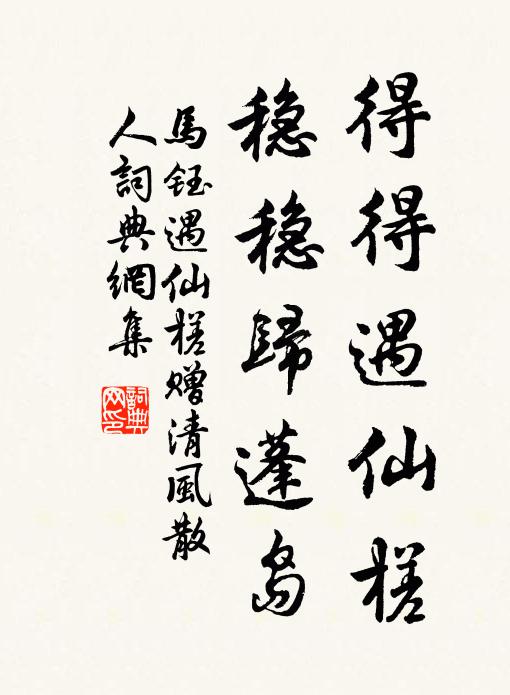 得得遇仙槎
稳稳歸蓬岛
馬鈺遇仙槎贈清風散
人詞典網集
詞典
网印